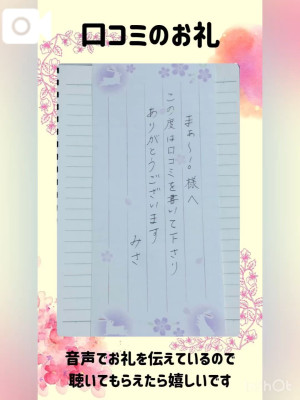 口コミのお礼
まぁ〜。様へ
この度は口コミを書いて下さり
ありがとうございます
みさ
音声でお礼を伝えているので
聴いてもらえたら嬉しいです